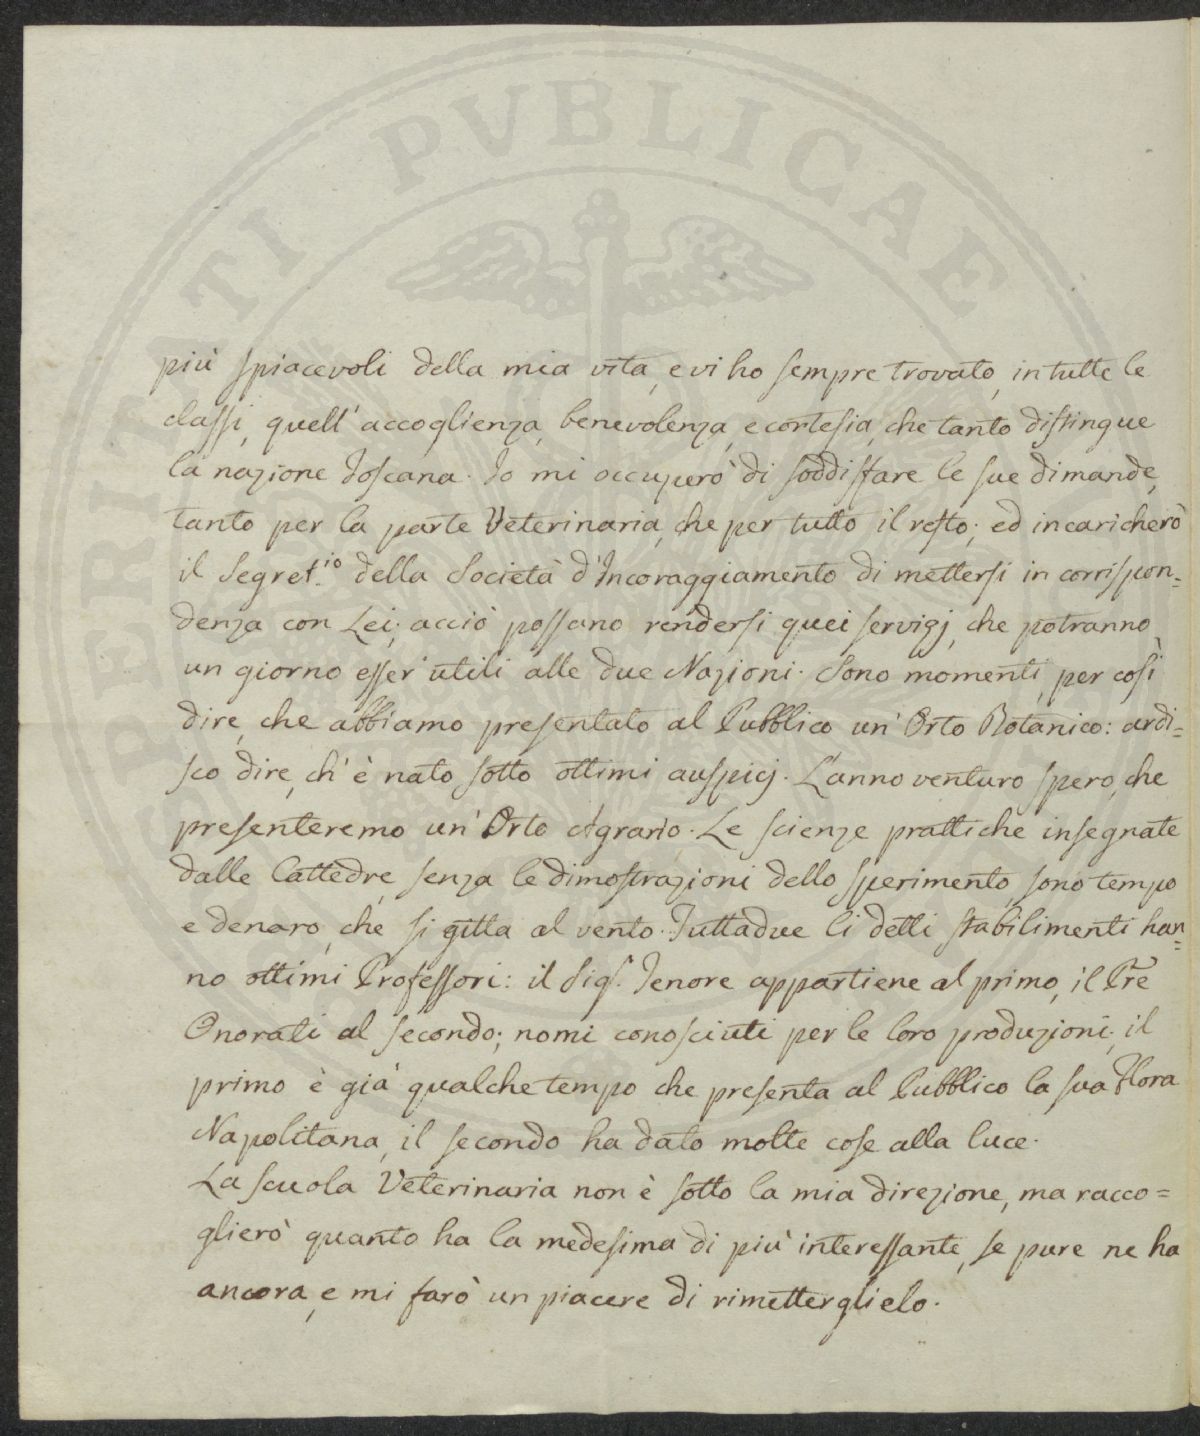 PROSPERITATI PVBLICAE
più spiacevoli della mia vita, e vi ho sempre trovato, in tutte le
classi, quell'accoglienza, benevolenza, e cortesia, che tanto distingue
la nazione Toscana. Io mi occuperò di soddisfare le sue dimande,
tanto per la parte Veterinaria, che per tutto il resto; ed incaricherò
il Segret.io della Società d'Incoraggiamento di mettersi in corrispon=
denza con Lei; acciò possano rendersi quei servigj, che potranno
un giorno esser utili alle due Nazioni. Sono momenti, per così
dire, che abbiamo presentato al Pubblico un'Orto Botanico: ardi=
sco dire, ch'è nato sotto ottimi auspicj. L'anno venturo spero, che
presenteremo un'Orto Agrario. Le scienze prattiche insegnate
dalle Cattedre, senza le dimostrazioni dello sperimento, sono tempo
e denaro, che si gitta al vento. Tuttadue li detti stabilimenti han=
no ottimi Professori: il Sig.r Tenore appartiene al primo, il P̃re
Onorati al secondo; nomi conosciuti per le loro produzioni; il
primo è già qualche tempo che presenta al Pubblico la sua Flora
Napolitana, il secondo ha dato molte cose alla luce.
La scuola Veterinaria non è sotto la mia direzione, ma racco=
glierò quanto ha la medesima di più interessante, se pure ne ha
ancora, e mi farò un piacere di rimetterglielo.